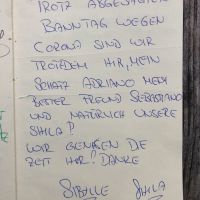 TROTZ ABGESAGTEN
BANNTAG WEGEN
CORONA SIND WIR
TROTZDEM HIR, MEIN
SCHATZ ADRIANO MEIN
BESTER FREUND SEBASTIANO
UND NATÜRLICH UNSERE
SHILA?
WIR GENISEN DE
ZEIT HIR! DANKE
SIBILLE SHILA